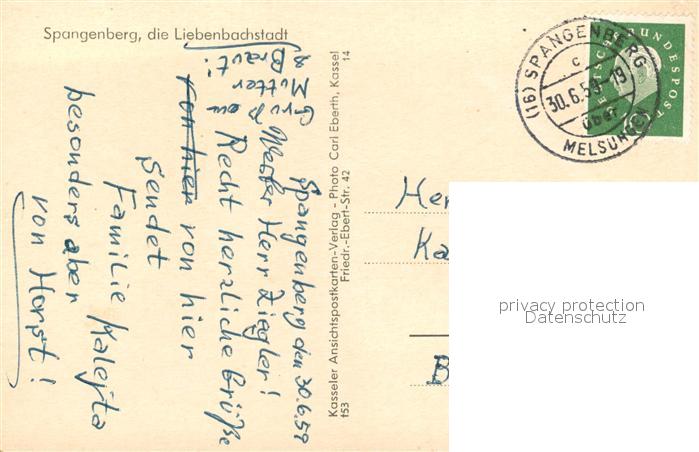 Spangenberg, die Liebenbachstadt
Spangenberg den 30.6.59
Werter Herr Ziegler!
Recht herzliche Grüße
von hier von hier
sendet
Familie Kalefta
besonders aber
von Horst!
Gruß an
Mutter
& Braut!
Kasseler Ansichtspostkarten-Verlag - Photo Carl Eberth, Kassel
Friedr.-Ebert-Str. 42
153
14
(16) SPANGENBERG
c
30.6.59-19
über
MELSUNGEN
DEUTSCHE BUNDESPOST
Her
Ka
B
privacy protection
Datenschutz